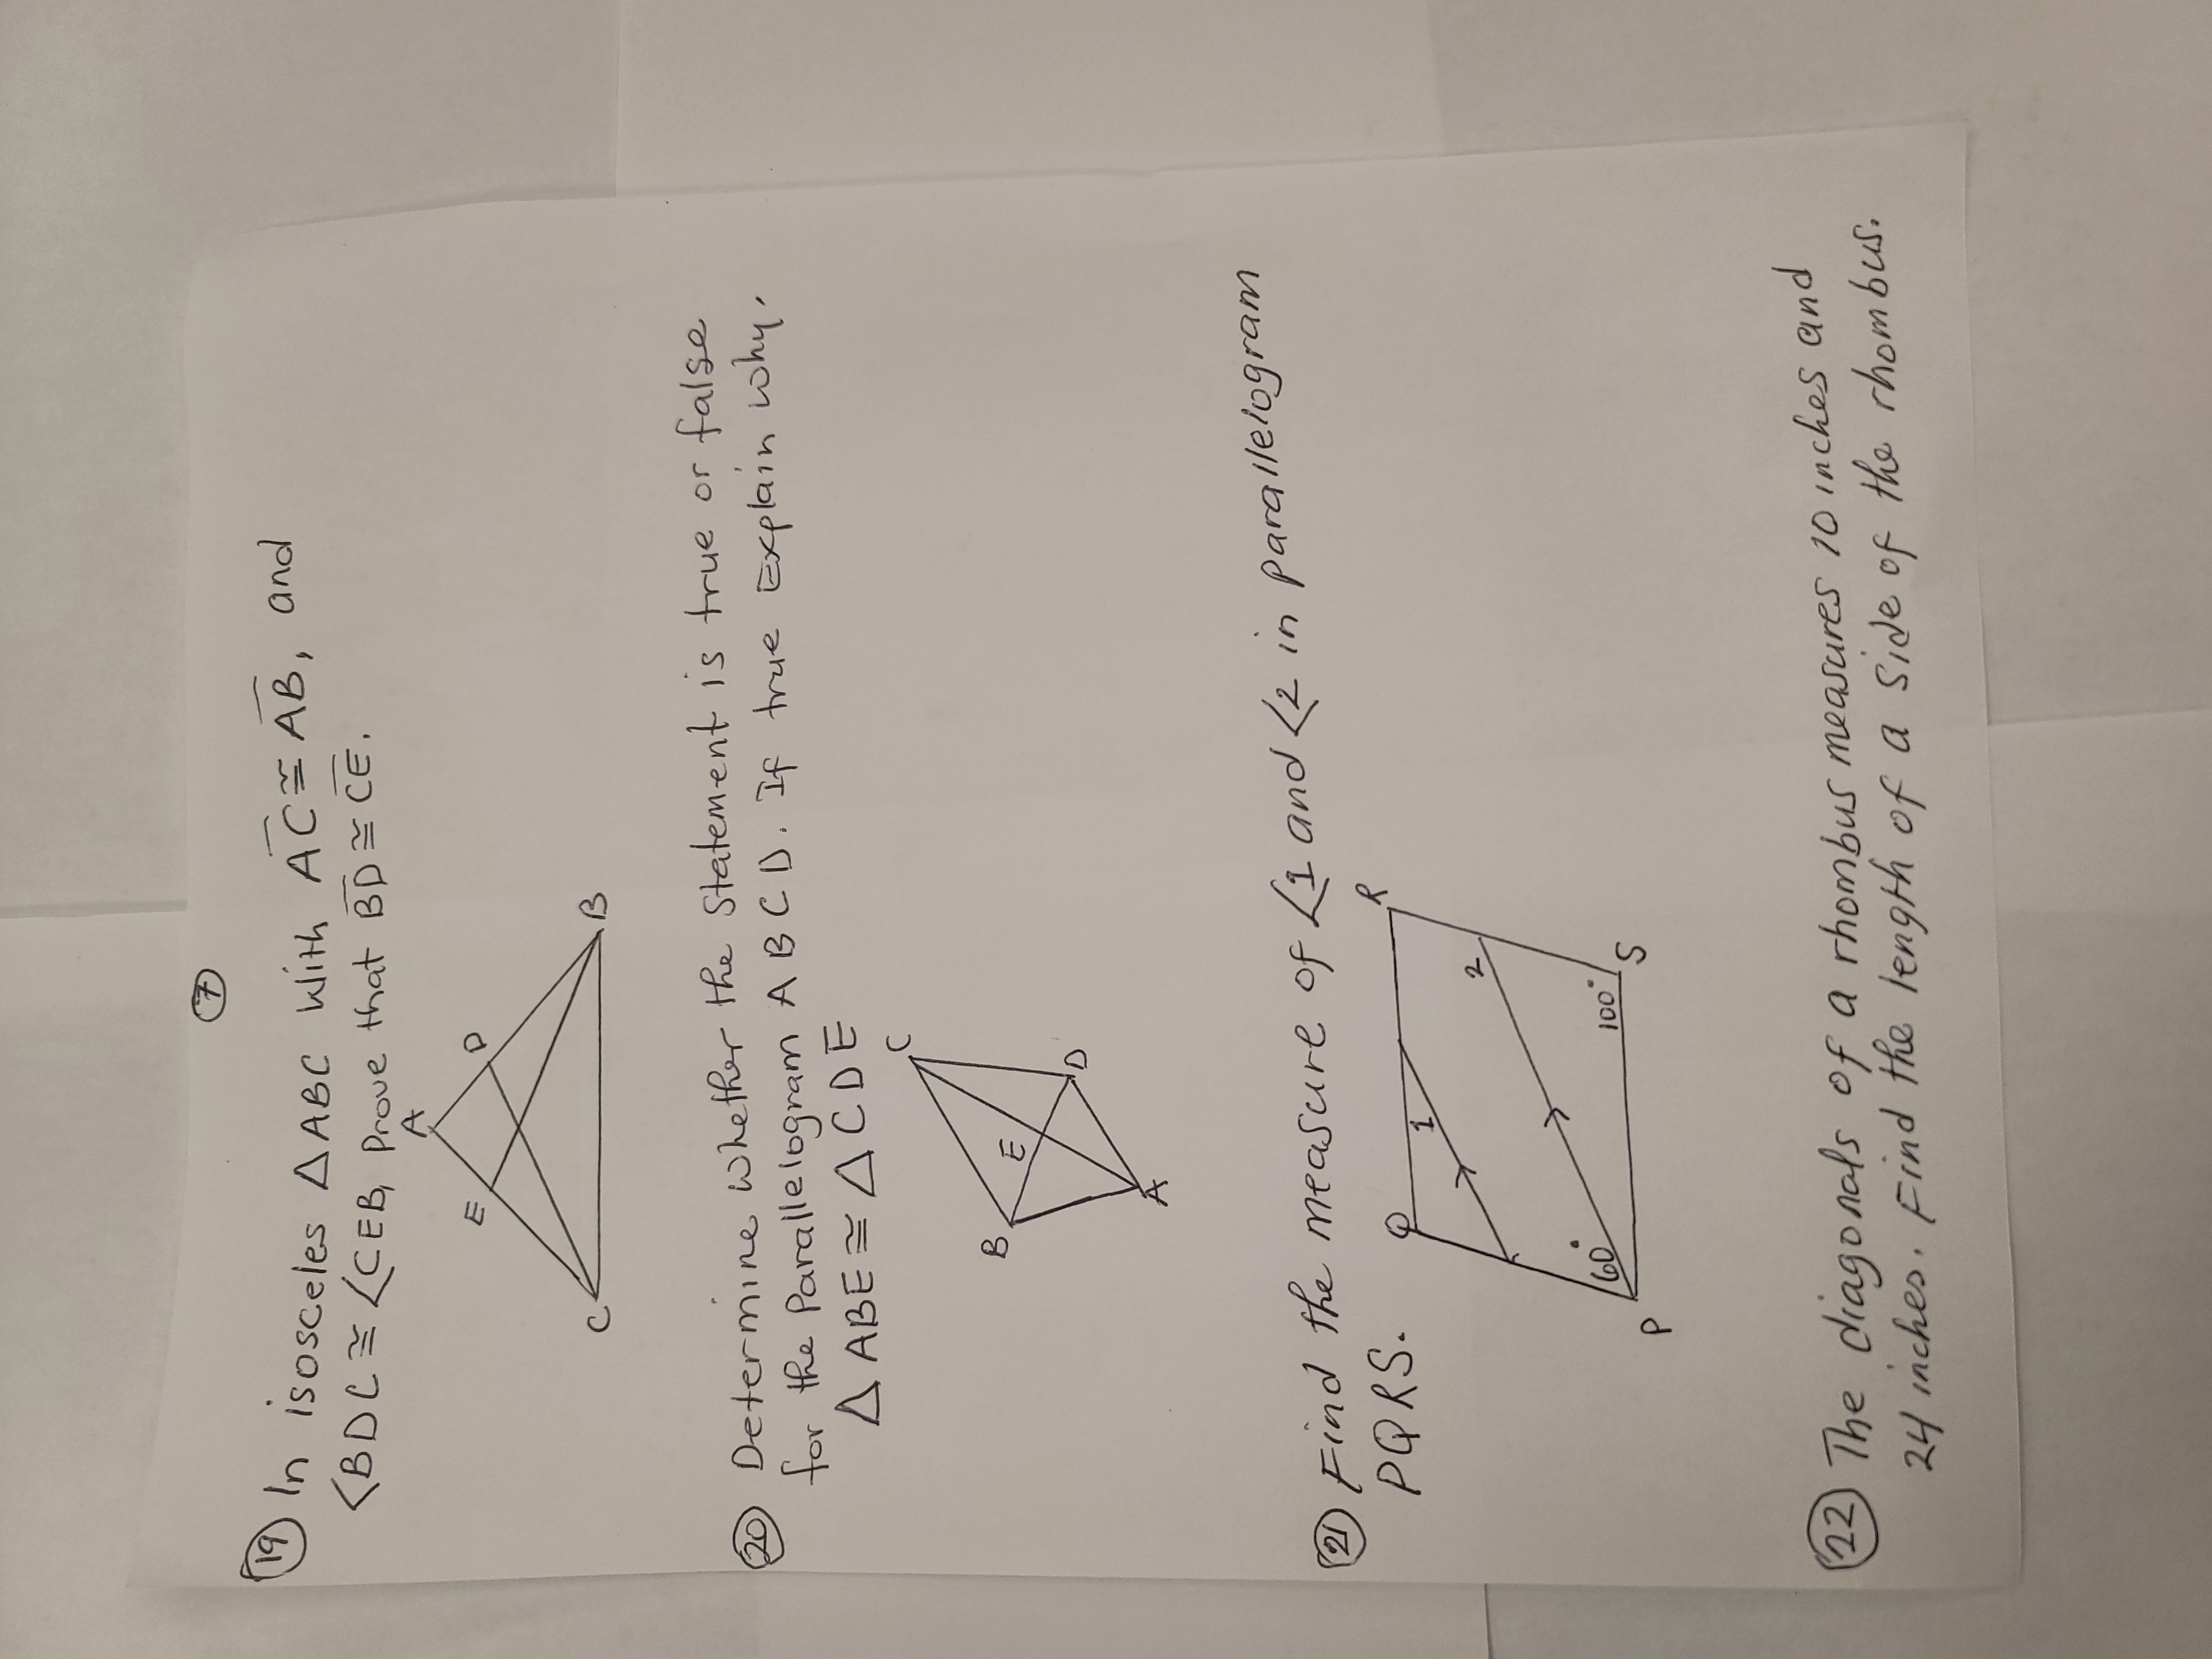 7
19 In isosceles △ABC with A̅C̅ ≅ A̅B̅, and
<BDC ≅ <CEB, Prove that B̅D̅ ≅ C̅E̅.
A
E
D
C
B
20 Determine whether the Statement is true or false
for the Parallelogram ABCD. If true Explain why.
△ABE ≅ △CDE
C
B
E
D
A
21 Find the measure of <1 and <2 in parallelogram
PQRS.
Q
R
1
2
60°
100°
P
S
22 The diagonals of a rhombus measures 10 inches and
24 inches. Find the length of a side of the rhombus.